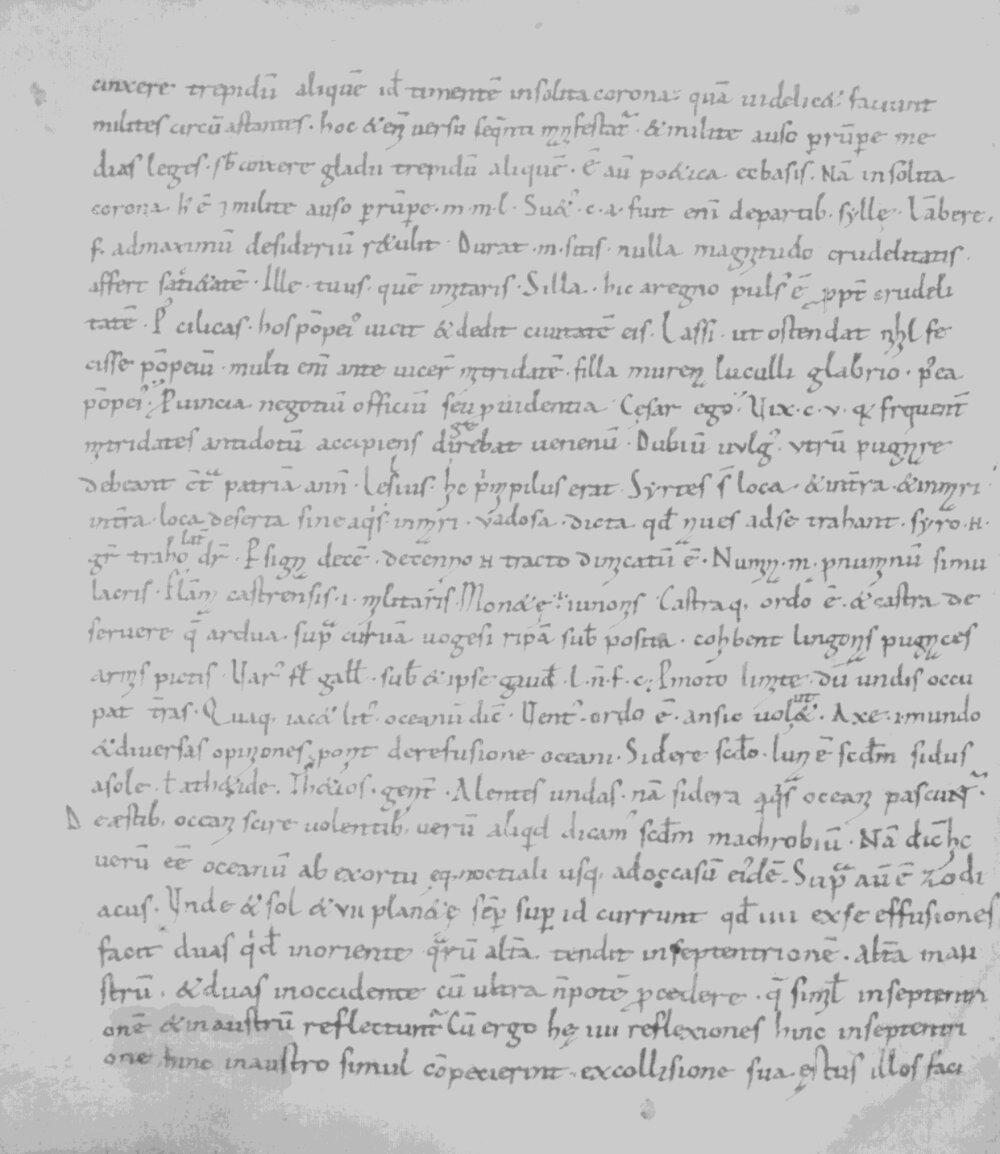 cinxere trepidū aliquē id̄ timentē insolita corona. quā uidelic&. faciunt
milites circū astantes. hoc & eñ uersu seq̄nti mānifestat̄. & milite auso p̱rūpe me
dias leges. s̄b coixere gladii trepidū aliquē. Ē aū po&ica ecbasis. Nā insolita
corona. h̄ ē milite auso p̱rūpe. m. m. l. Sua&. c. a. fuit eni departib. sylle. Lābere.
f. admaximū desideriū r&ulit. Durat. m. sitis. nulla magnitudo crudelitatis.
affert sati&atē. Ille. tuus. quē imitaris. Silla. hic aregno puls' ē p̱pt̄ crudeli
tatē. P' cilicas. hos pōpei' uicit & dedit ciuitatē eis. Lassi. ut ostendat nihil fe
cisse pōpeiū. multi eni ante uicer̄ mitridatē. silla muren luculli glabrio. p'ea
pōpei'. Puincia negotiū officiū seu puidentia. Cesar ego. Uix. c. v. q& frquent̄
mitridates antidotū accipiens direbat uenenū. Dubiū uulg'. utrū pugnare
debeant c̄t patriā ann. Lesius. hc pimipilus erat. Syrtes s̄ loca. & int̄ra. & inmari
int̄ra. loca deserta sine aq̇s. inmari. vadosa. dicta qd̄ naues adse trahant. syro. N.
gr̄ traho lat̄ dr̄. P signa decē. decenno N tracto dimicatū ē. Numin. m. p numinū simu
lacris. Flām castrensis. i. militaris. Mon&e. iunonis Castraq, ordo ē. & castra de
seruere q̄ ardua. sup̄ curuā uogesi ripā sub̄ posita. cohibent lingonas pugnaces
armis pictis. Uar' fl̄ gall̄. sub̄ & ipse guid̄. l. n̄. f. c. Pmoto limite. dū undis occu
pat t̄ras. Quaq, iac& lit'. oceanū dic̄. Uent'. ordo ē. ansic uol&. ut Axe. i. mundo
& diuersas opinones pont derefusione oceani. Sidere scdo. lun ē scdm̄ sidus
asole. Tath&ide. Th&ios. gent̄. Alentes undas. nā sidera aq̇s oceani pascunt̄.
D e æstib, oceani scire uolentib, uerū aliqd dicam' scdm̄ machrobiū. Nā dic̄ hc
uerū eē oceanū ab exortu eq,noctiali usq, adoccasū ei'dē. Sup̄ aū ē zodi
acus. Unde & sol & uii plan&e sēp sup id currunt qd̄ iiii exse effusiones
facit duas q̇d̄ inoriente q̄rū alt̄a tendit inseptentrionē. alt̄a inau
strū. & duas inoccidente cū ultra n̄ potē p̱cedere. q̄ simul̄ inseptentri
onē & inaustrū reflectunt̄ Cū ergo he iiii reflexiones hinc inseptentri
one hinc inaustro simul cōpexierint. excollisione sua estus illos faci